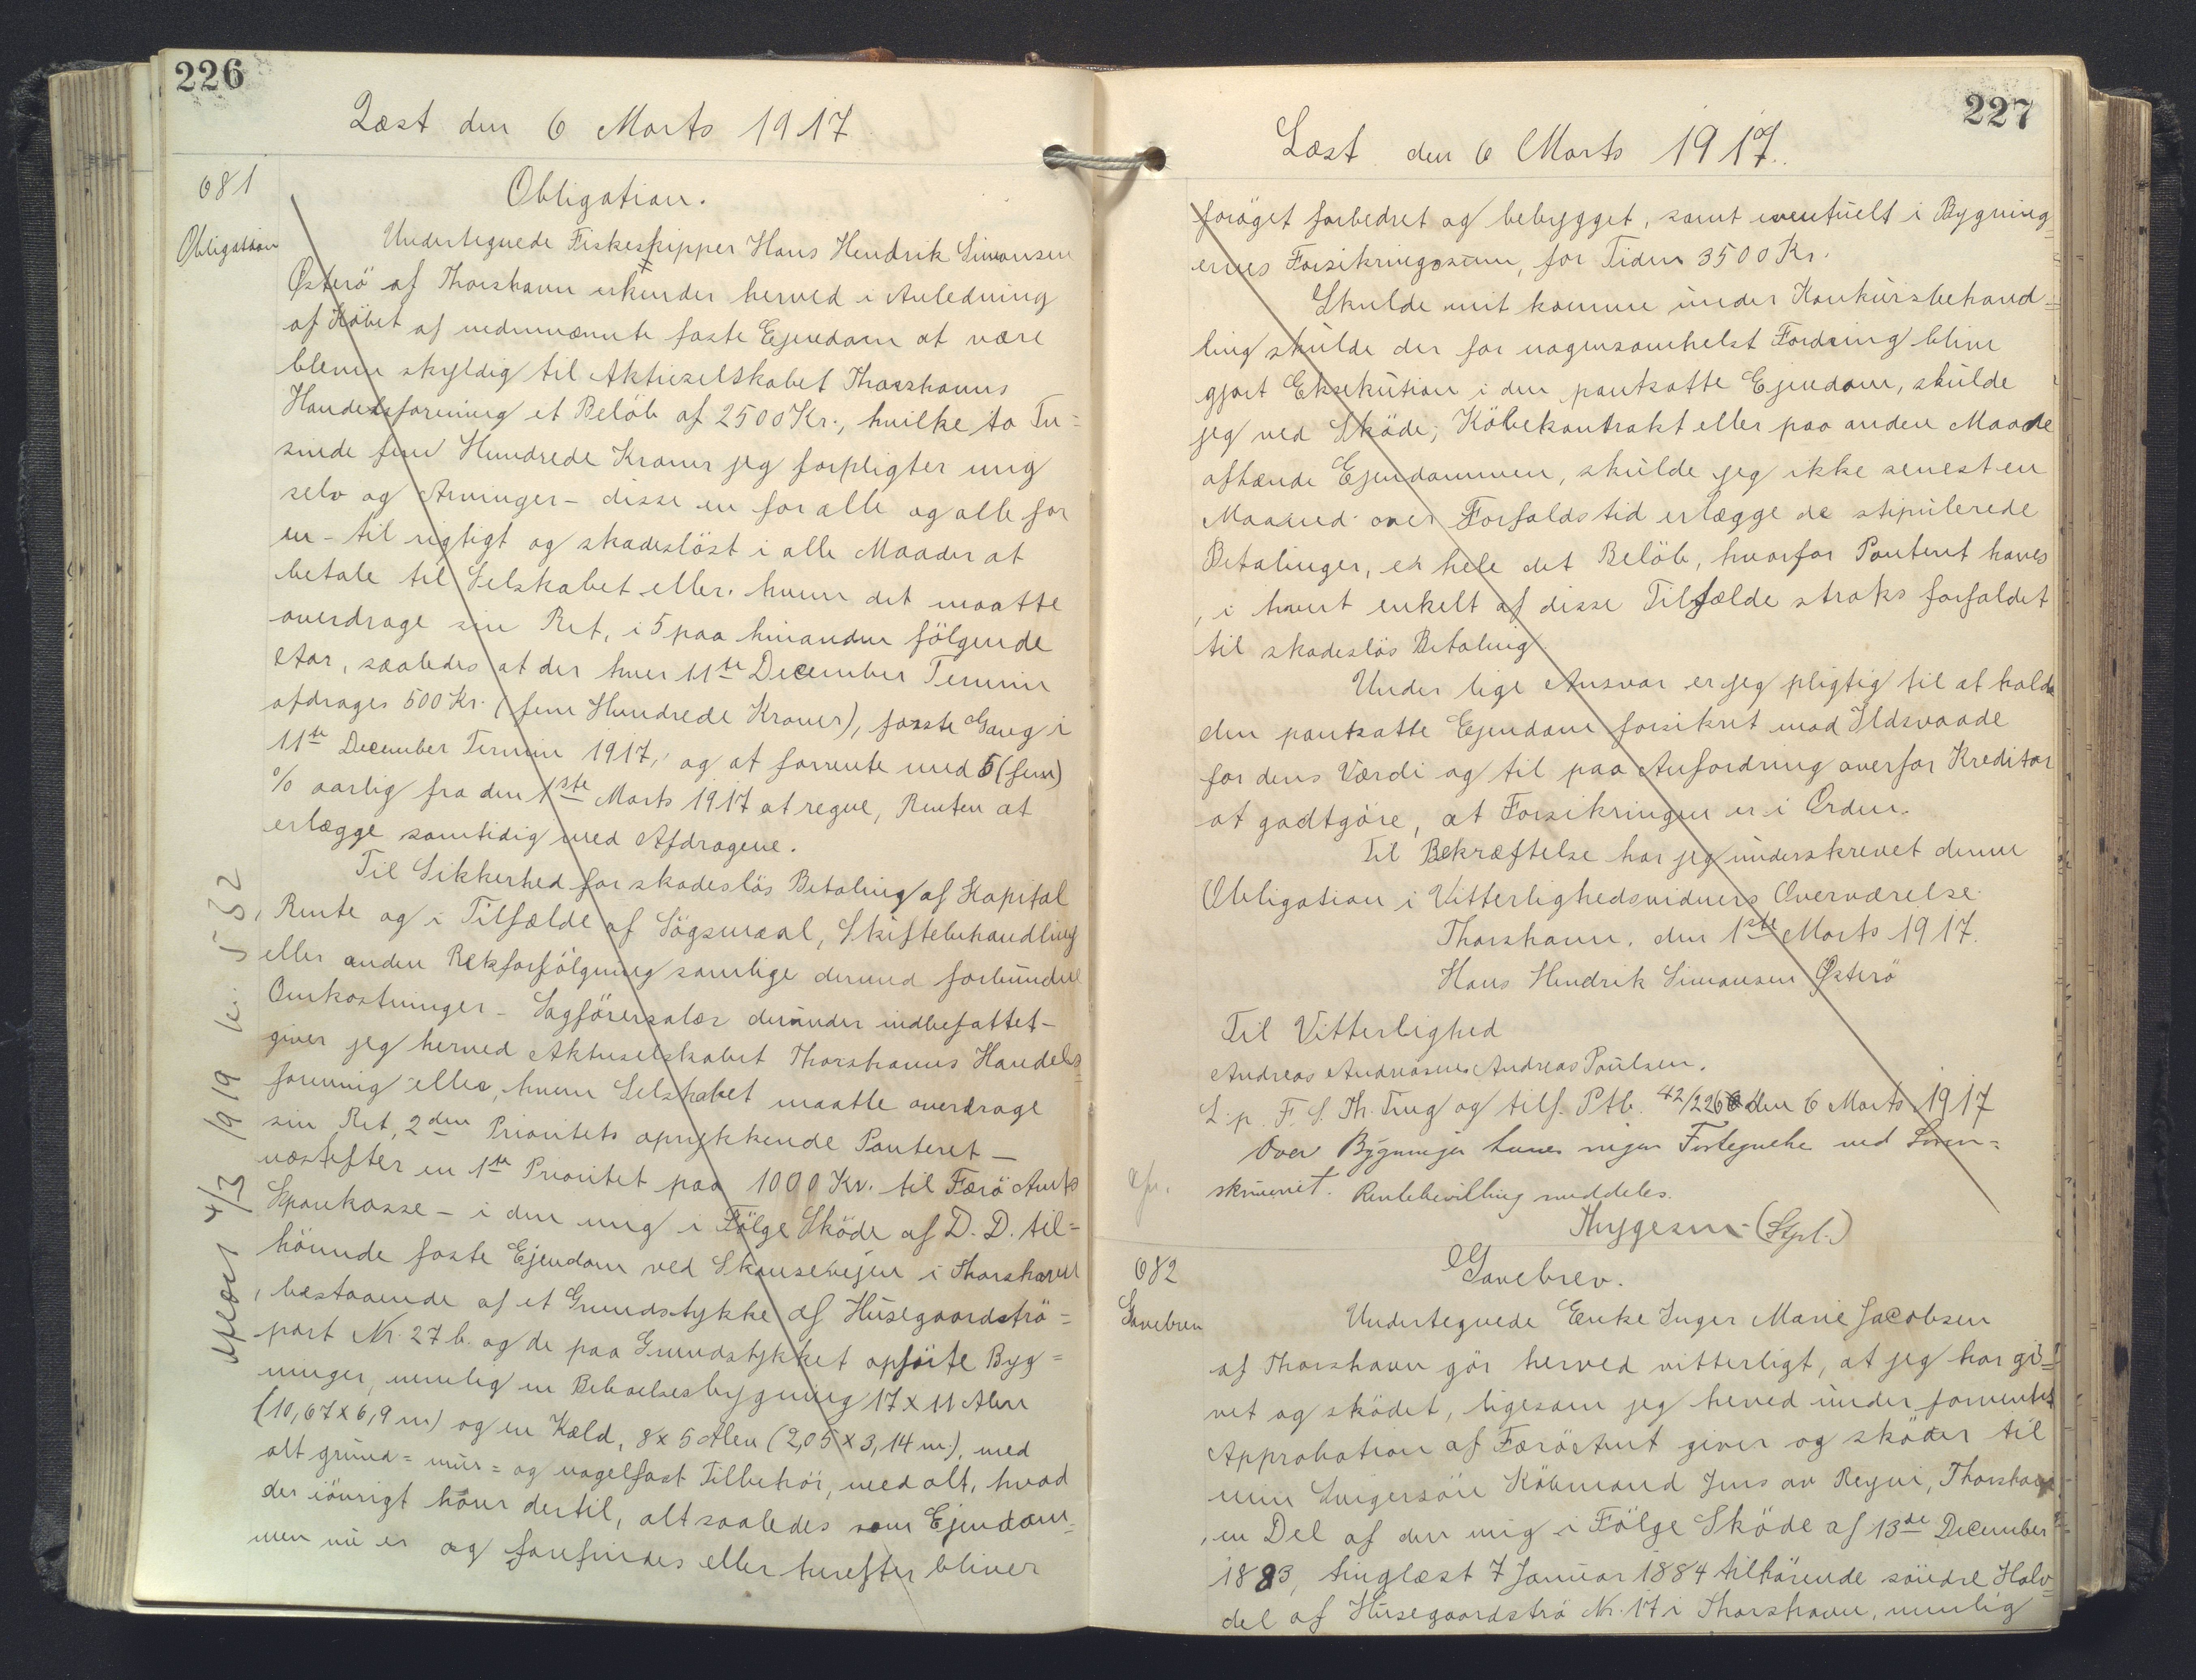 226
Læst den 6 Marts 1917
681
Obligation
Obligation.
Undertegnede Fiskeskipper Hans Hendrik Simonsen
Østerö af Thorshavn erkender herved i Anledning
af Köbet af nedennævnte faste Ejendom at være
bleven skyldig til Aktieselskabet Thorshavns
Handelsforening et Belöb af 2500 Kr., hvilke to Tu=
sinde fem Hundrede Kroner jeg forpligter mig
selv og Arvinger – disse en for alle og alle for
en – til rigtigt og skadeslöst i alle Maader at
betale til Selskabet eller, hvem det maatte
overdrage sin Ret, i 5 paa hinanden fölgende
Aar, saaledes at der hver 11te December Termin
afdrages 500 Kr. (fem Hundrede Kroner), förste Gang i
11te December Termin 1917, og at forrente med 5 (fem)
% aarlig fra den 1ste Marts 1917 at regne, Renten at
erlægge samtidig med Afdragene.
Til Sikkerhed for skadeslös Betaling af Kapital
, Rente og i Tilfælde af Sögsmaal, Skiftebehandling
eller anden Retsforfölgning samtlige dermed forbundne
Omkostninger – Sagförersalær derunder indbefattet –
giver jeg herved Aktieselskabet Thorshavns Handels=
forening eller, hvem Selskabet maatte overdrage
sin Ret, 2den Prioritets oprykkende Panteret –
næstefter en 1ste Prioritet paa 1000 Kr. til Færö Amts
Sparekasse – i den mig i Fölge Sköde af D. D. til=
hörende faste Ejendom ved Skansevejen i Thorshavn
, bestaaende af et Grundstykke af Husegaardströ=
part Nr. 27 b. og de paa Grundstykket opförte Byg=
ninger, nemlig en Beboelsesbygning 17 x 11 Alen
(10,67 x 6,9 m) og en Kæld, 8 x 5 Alen (2,05 x 3,14 m.), med
alt grund= mur= og nagelfast Tilbehör, med alt, hvad
der iövrigt hörer dertil, alt saaledes som Ejendom=
men nu er og forefindes eller herefter bliver
4/3 1919
532
227
Læst den 6 Marts 1917.
foröget forbedret og bebygget, samt eventuelt i Bygning=
ernes Forsikringssum, for Tiden 3500 Kr.
Skulde mit komme under Konkursbehand=
ling skulde der for nogensomhelst Fordring blive
gjort Eksekution i den pantsatte Ejendom, skulde
jeg ved Sköde, Köbekontrakt eller paa anden Maade
afhænde Ejendommen, skulde jeg ikke senest en
Maaned over Forfaldstid erlægge de stipulerede
Betalinger, er hele det Belöb, hvorfor Panteret haves
, i hvert enkelt af disse Tilfælde straks forfaldet
til skadeslös Betaling.
Under lige Ansvar er jeg pligtig til at holde
den pantsatte Ejendom forsikret mod Ildsvaade
for dens Værdi og til paa Anfordring overfor Kreditor
at godtgöre, at Forsikringen er i Orden.
Til Bekræftelse har jeg underskrevet denne
Obligation i Vitterlighedsvidners Overværelse.
Thorshavn, den 1ste Marts 1917.
Hans Hendrik Simonsen Østerö
Til Vitterlighed
Andreas Andreasen Andreas Poulsen.
L. p. F. S. Th. Ting og tilf. Ptb. 42/226 den 6 Marts 1917
Over Bygninger haves ingen Fortegnelse ved Soren=
skriveriet. Rentebevilling meddeles.
Thygesen (Stpl.)
682
Gavebrev
Gavebrev.
Undertegnede Enke Inger Marie Jacobsen
af Thorshavn gör herved vitterligt, at jeg har gi=
vet og sködet, ligesom jeg herved under forventet
Approbation af Færöamt giver og sköder til
min Svigersön Köbmand Jens av Reyni, Thorshavn
, en Del af den mig i Fölge Sköde af 13de December
1883, tinglæst 7 Januar 1884 tilhörende söndre Halv=
del af Husegaardströ Nr. 17 i Thorshavn, nemlig